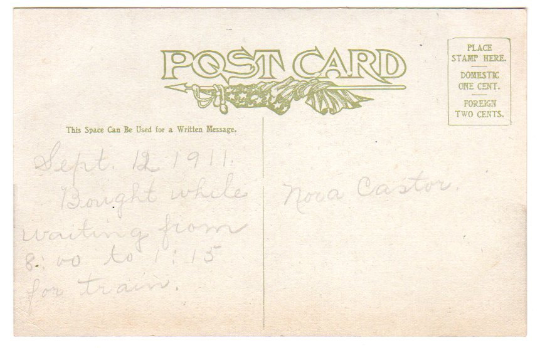 POST CARD
PLACE
STAMP HERE.
DOMESTIC
ONE CENT.
FOREIGN
TWO CENTS.
This Space Can Be Used for a Written Message.
Sept. 12 1911.
Bought while
waiting from
8:00 to 1:15
for train.
Nova Castor.